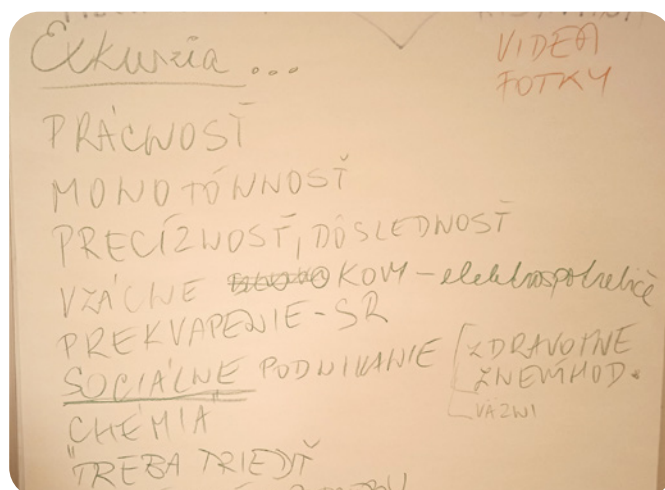 Exkurzia ...
VIDEA
FOTKY
PRÁCNOSŤ
MONOTÓNNOSŤ
PRECÍZNOSŤ, DÔSLEDNOSŤ
VZÁCNE KOV4 - elektrospotrebiče
PREKVAPENIE - SR
SOCIÁLNE PODNIKANIE
ZDRAVOTNE
ZNEVÝHOD.
VÄZNI
CHÉMIA
"TREBA TRIEDIŤ